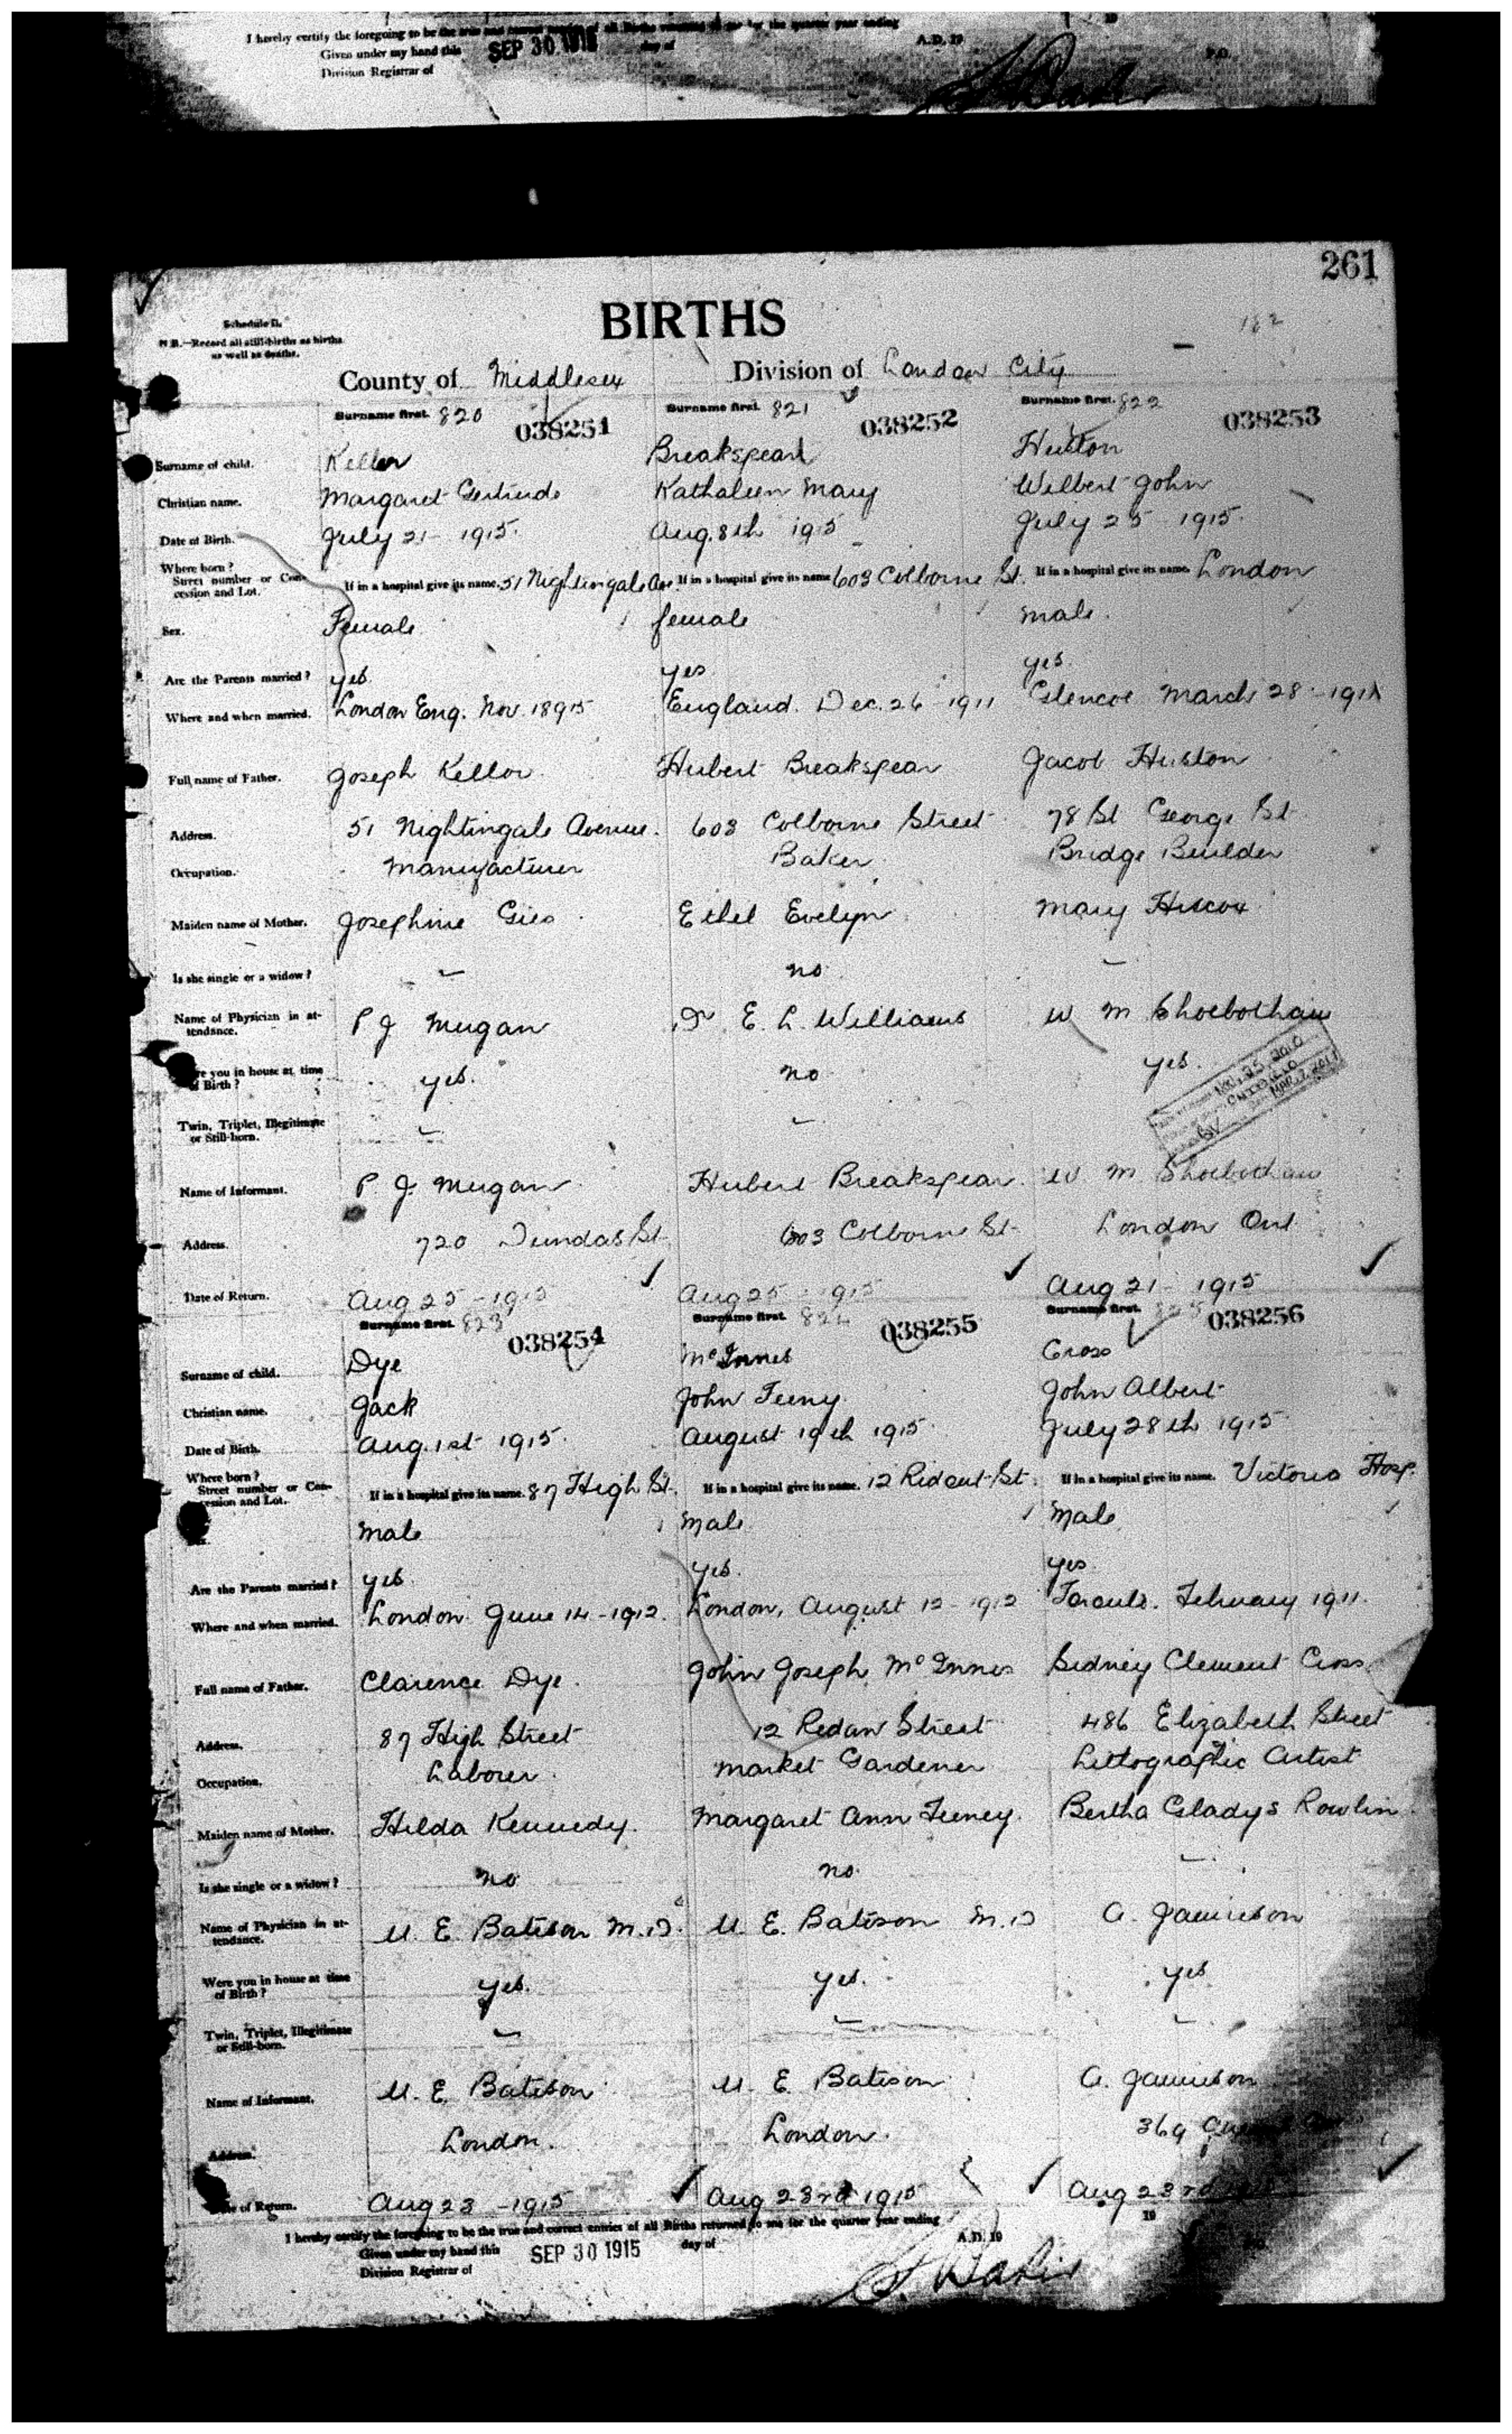 I hereby certify the foregoing to be the true and correct entries of all Births returned to me for the quarter year ending
Given under my hand this SEP 30 1915 day of A.D. 19
Division Registrar of P.O.
261
BIRTHS
182
Schedule B.
N.B.—Record all still-births as births
as well as deaths.
County of Middlesex Division of London City
Surname first. 820 038251 Surname first. 821 038252 Surname first. 822 038253
Surname of child. Keller Breakspear Huston
Christian name. Margaret Gertrude Kathaleen Mary Wilbert John
Date of Birth. July 21 - 1915. Aug. 8th 1915 July 25 - 1915.
Where born?
Street number or Con-
cession and Lot. If in a hospital give its name. 51 Nightingale Ave. If in a hospital give its name 603 Colborne St. If in a hospital give its name. London
Sex. Female female male.
Are the Parents married? yes. yes yes.
Where and when married. London Eng. Nov. 18915 England. Dec. 26 - 1911 Glencoe March 28 - 191
Full name of Father. Joseph Kellor. Hubert Breakspear Jacob Huston
Address. 51 Nightingale Avenue. 603 Colborne Street 78 St George St.
Occupation. Manufacturer Baker. Bridge Builder
Maiden name of Mother. Josephine Gies Ethel Evelyn Mary Hiscox
Is she single or a widow? - no. -
Name of Physician in at-
tendance. P J Mugan Dr. E. L. Williams W M Shoebotham
Were you in house at time
of Birth? yes. no yes.
Nov. 25, 2010
MAR. 7, 2011
Twin, Triplet, Illegitimate
or Still-born. - -
Name of Informant. P. J. Mugan Hubert Breakspear. W M Shoebotham
Address. 720 Dundas St. 603 Colborn St. London Ont
Date of Return. Aug 25 - 1915 Aug 25 - 1915 Aug 21 - 1915
Surname first. 823 038254 Surname first. 824 038255 Surname first. 825 038256
Surname of child. Dye McInnes Cross
Christian name. Jack John Feeny. John Albert
Date of Birth. Aug. 1st 1915. August 19th 1915 July 28th 1915
Where born?
Street number or Con-
cession and Lot. If in a hospital give its name. 87 High St. If in a hospital give its name. 12 Ridout St. If in a hospital give its name. Victoria Hosp.
Sex. Male Male Male
Are the Parents married? yes. yes. yes
Where and when married. London. June 14 - 1912. London, August 12 - 1912 February 1911.
Full name of Father. Clarence Dye. John Joseph McInnes Sidney Clement Cross
Address. 87 High Street 12 Redan Street 486 Elizabeth Street
Occupation. Laborer Market Gardener Lithographic Artist
Maiden name of Mother. Hilda Kennedy. Margaret Ann Feeney. Bertha Gladys Rowlin.
Is she single or a widow? no no. -
Name of Physician in at-
tendance. U. E. Bateson M.D. U. E. Bateson M.D A. Jamieson
Were you in house at time
of Birth? yes. yes. yes
Twin, Triplet, Illegitimate
or Still-born. - - -
Name of Informant. U. E. Bateson U. E. Bateson A. Jamieson
Address. London. London. 369
Date of Return. Aug 23 - 1915 Aug 23rd 1915 Aug 23rd 1915
I hereby certify the foregoing to be the true and correct entries of all Births returned to me for the quarter year ending 19
Given under my hand this SEP 30 1915 day of A.D. 19
Division Registrar of P.O.